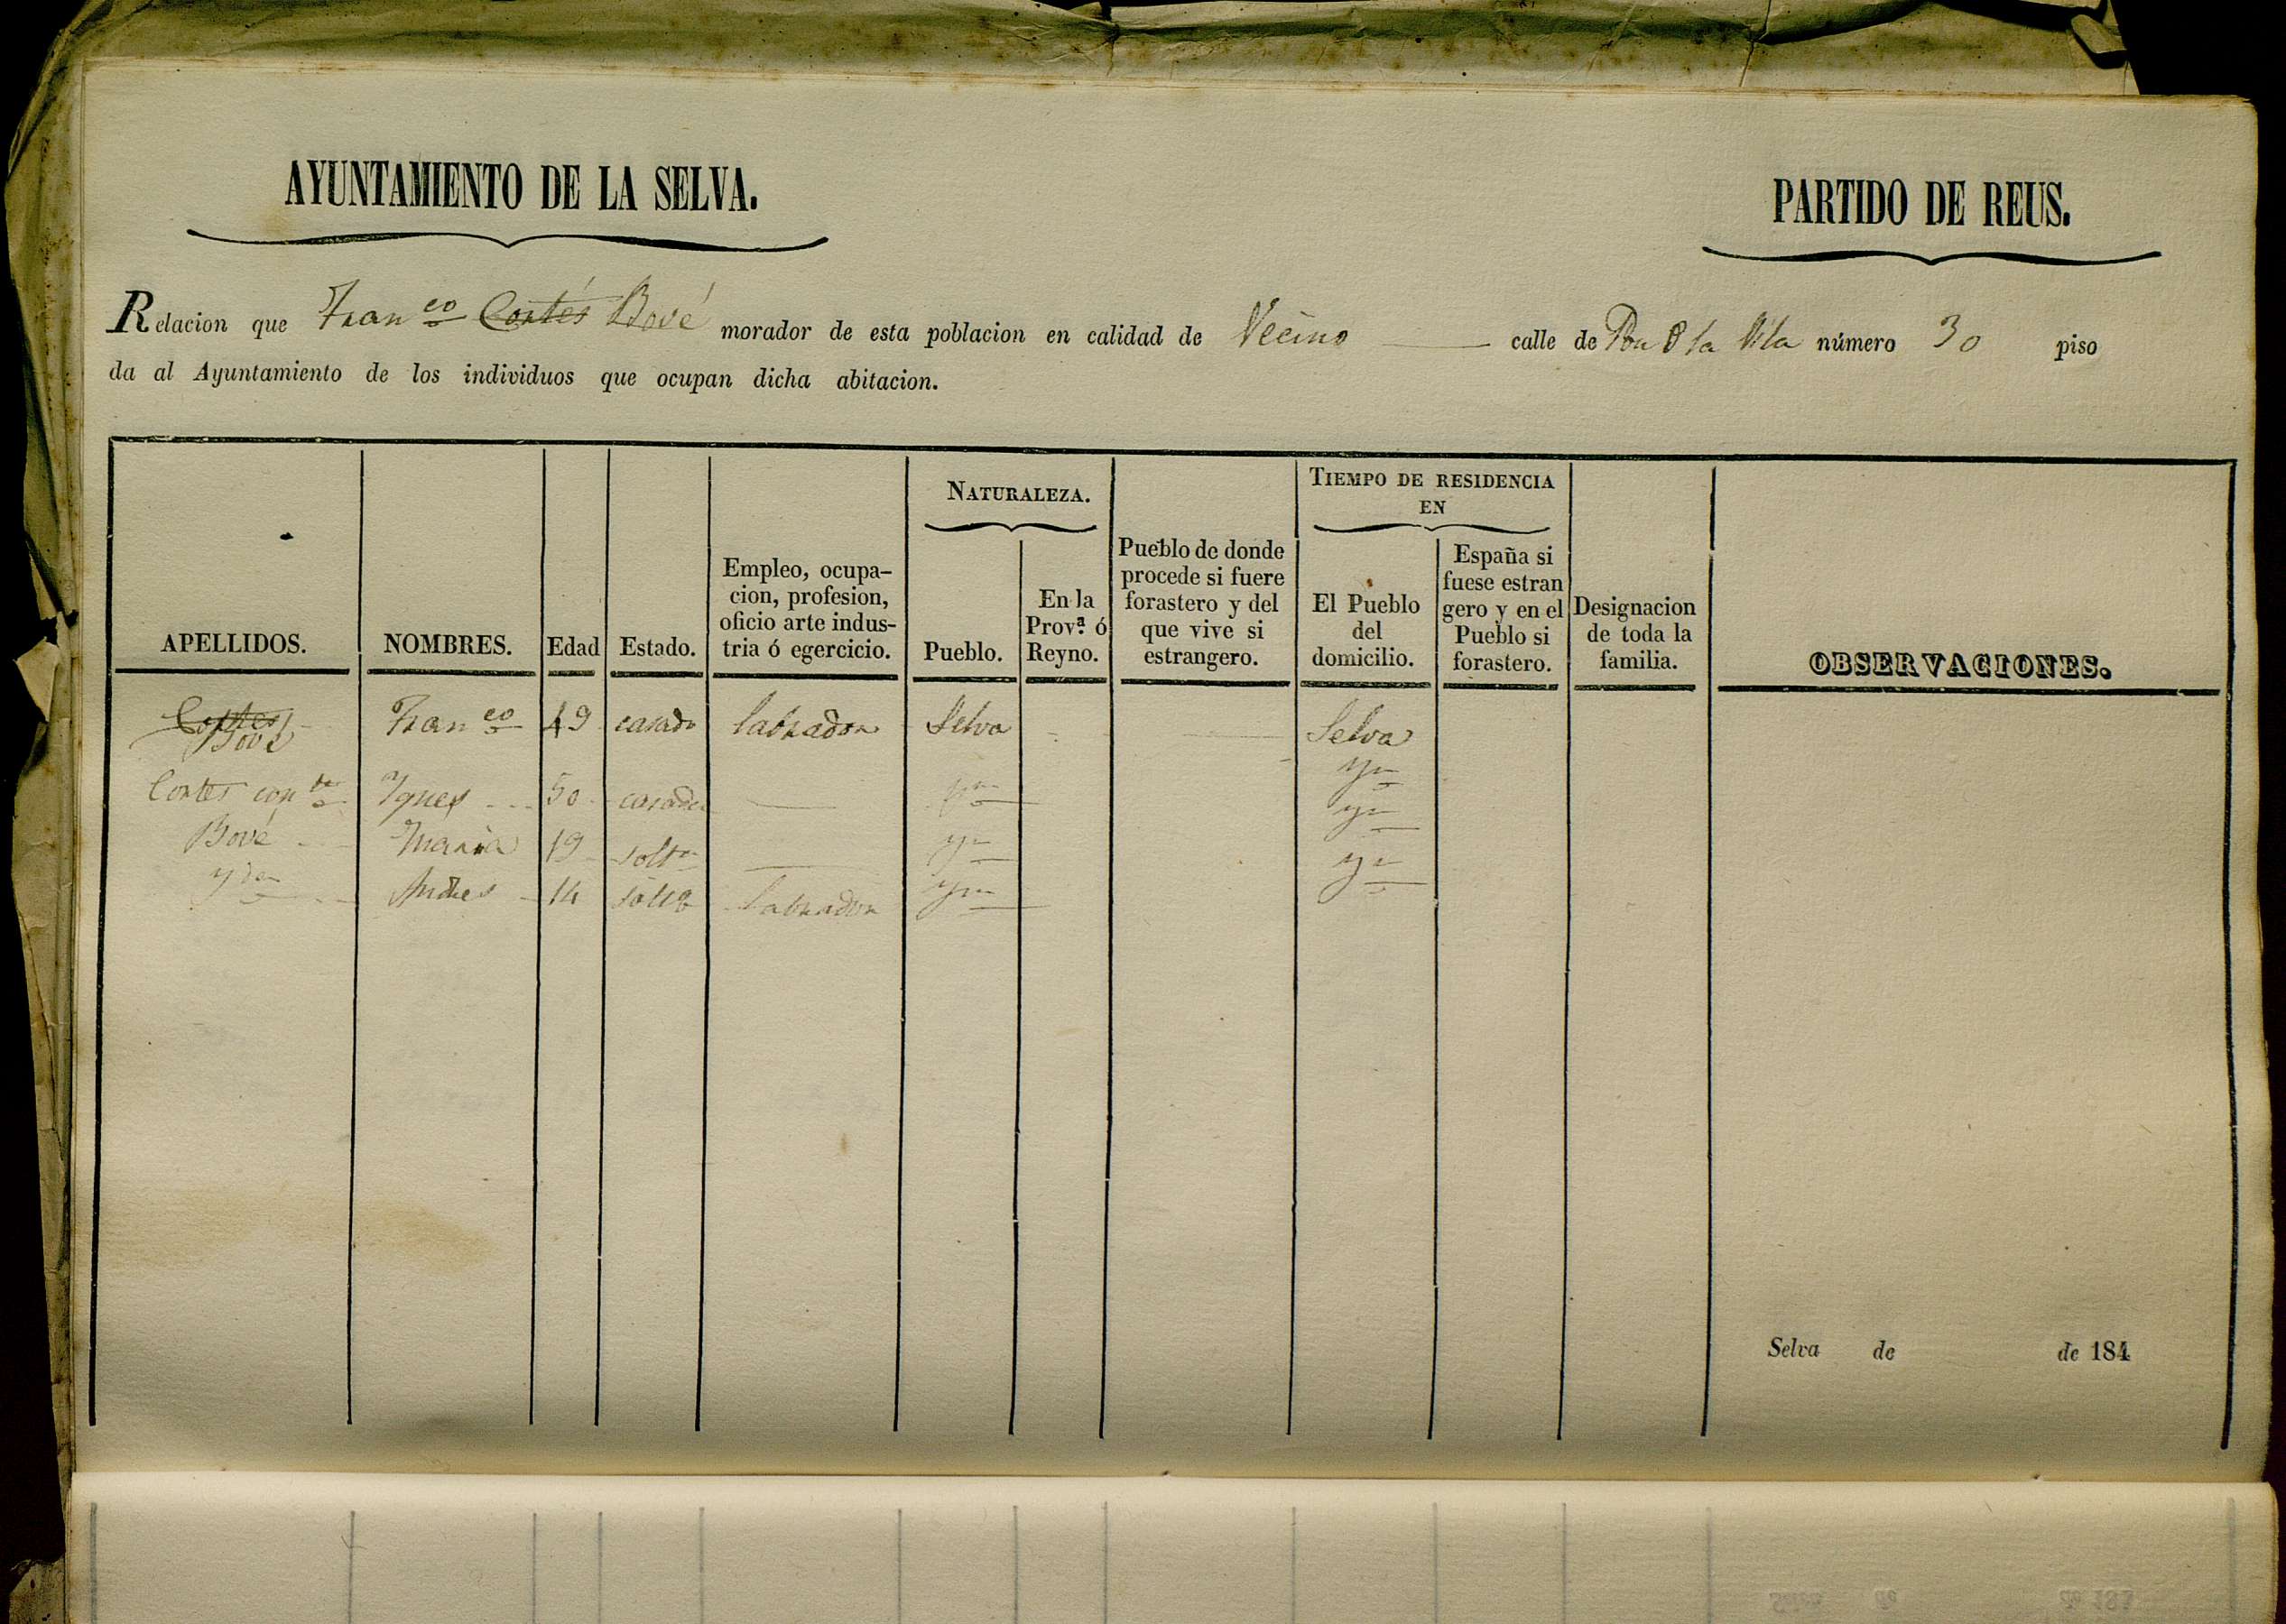 AYUNTAMIENTO DE LA SELVA.
PARTIDO DE REUS.
Relacion que Fran.co Cortés Bové morador de esta poblacion en calidad de Vecino calle de la Vila número 30 piso
da al Ayuntamiento de los individuos que ocupan dicha abitacion.
NATURALEZA.
TIEMPO DE RESIDENCIA EN
APELLIDOS. NOMBRES. Edad Estado. Empleo, ocupacion, profesion, oficio arte industria ó egercicio. Pueblo. En la Prov.ª ó Reyno. Pueblo de donde procede si fuere forastero y del que vive si estrangero. El Pueblo del domicilio. España si fuese estrangero y en el Pueblo si forastero. Designacion de toda la familia. OBSERVACIONES.
Cortes Bové Fran.co 49 casado labrador Selva Selva
Cortes con.te Ygnes 50 casada yn yn
Bové Maria 19 solt.a yn yn
yden Andres 14 solto labrador yn yn
Selva de de 184